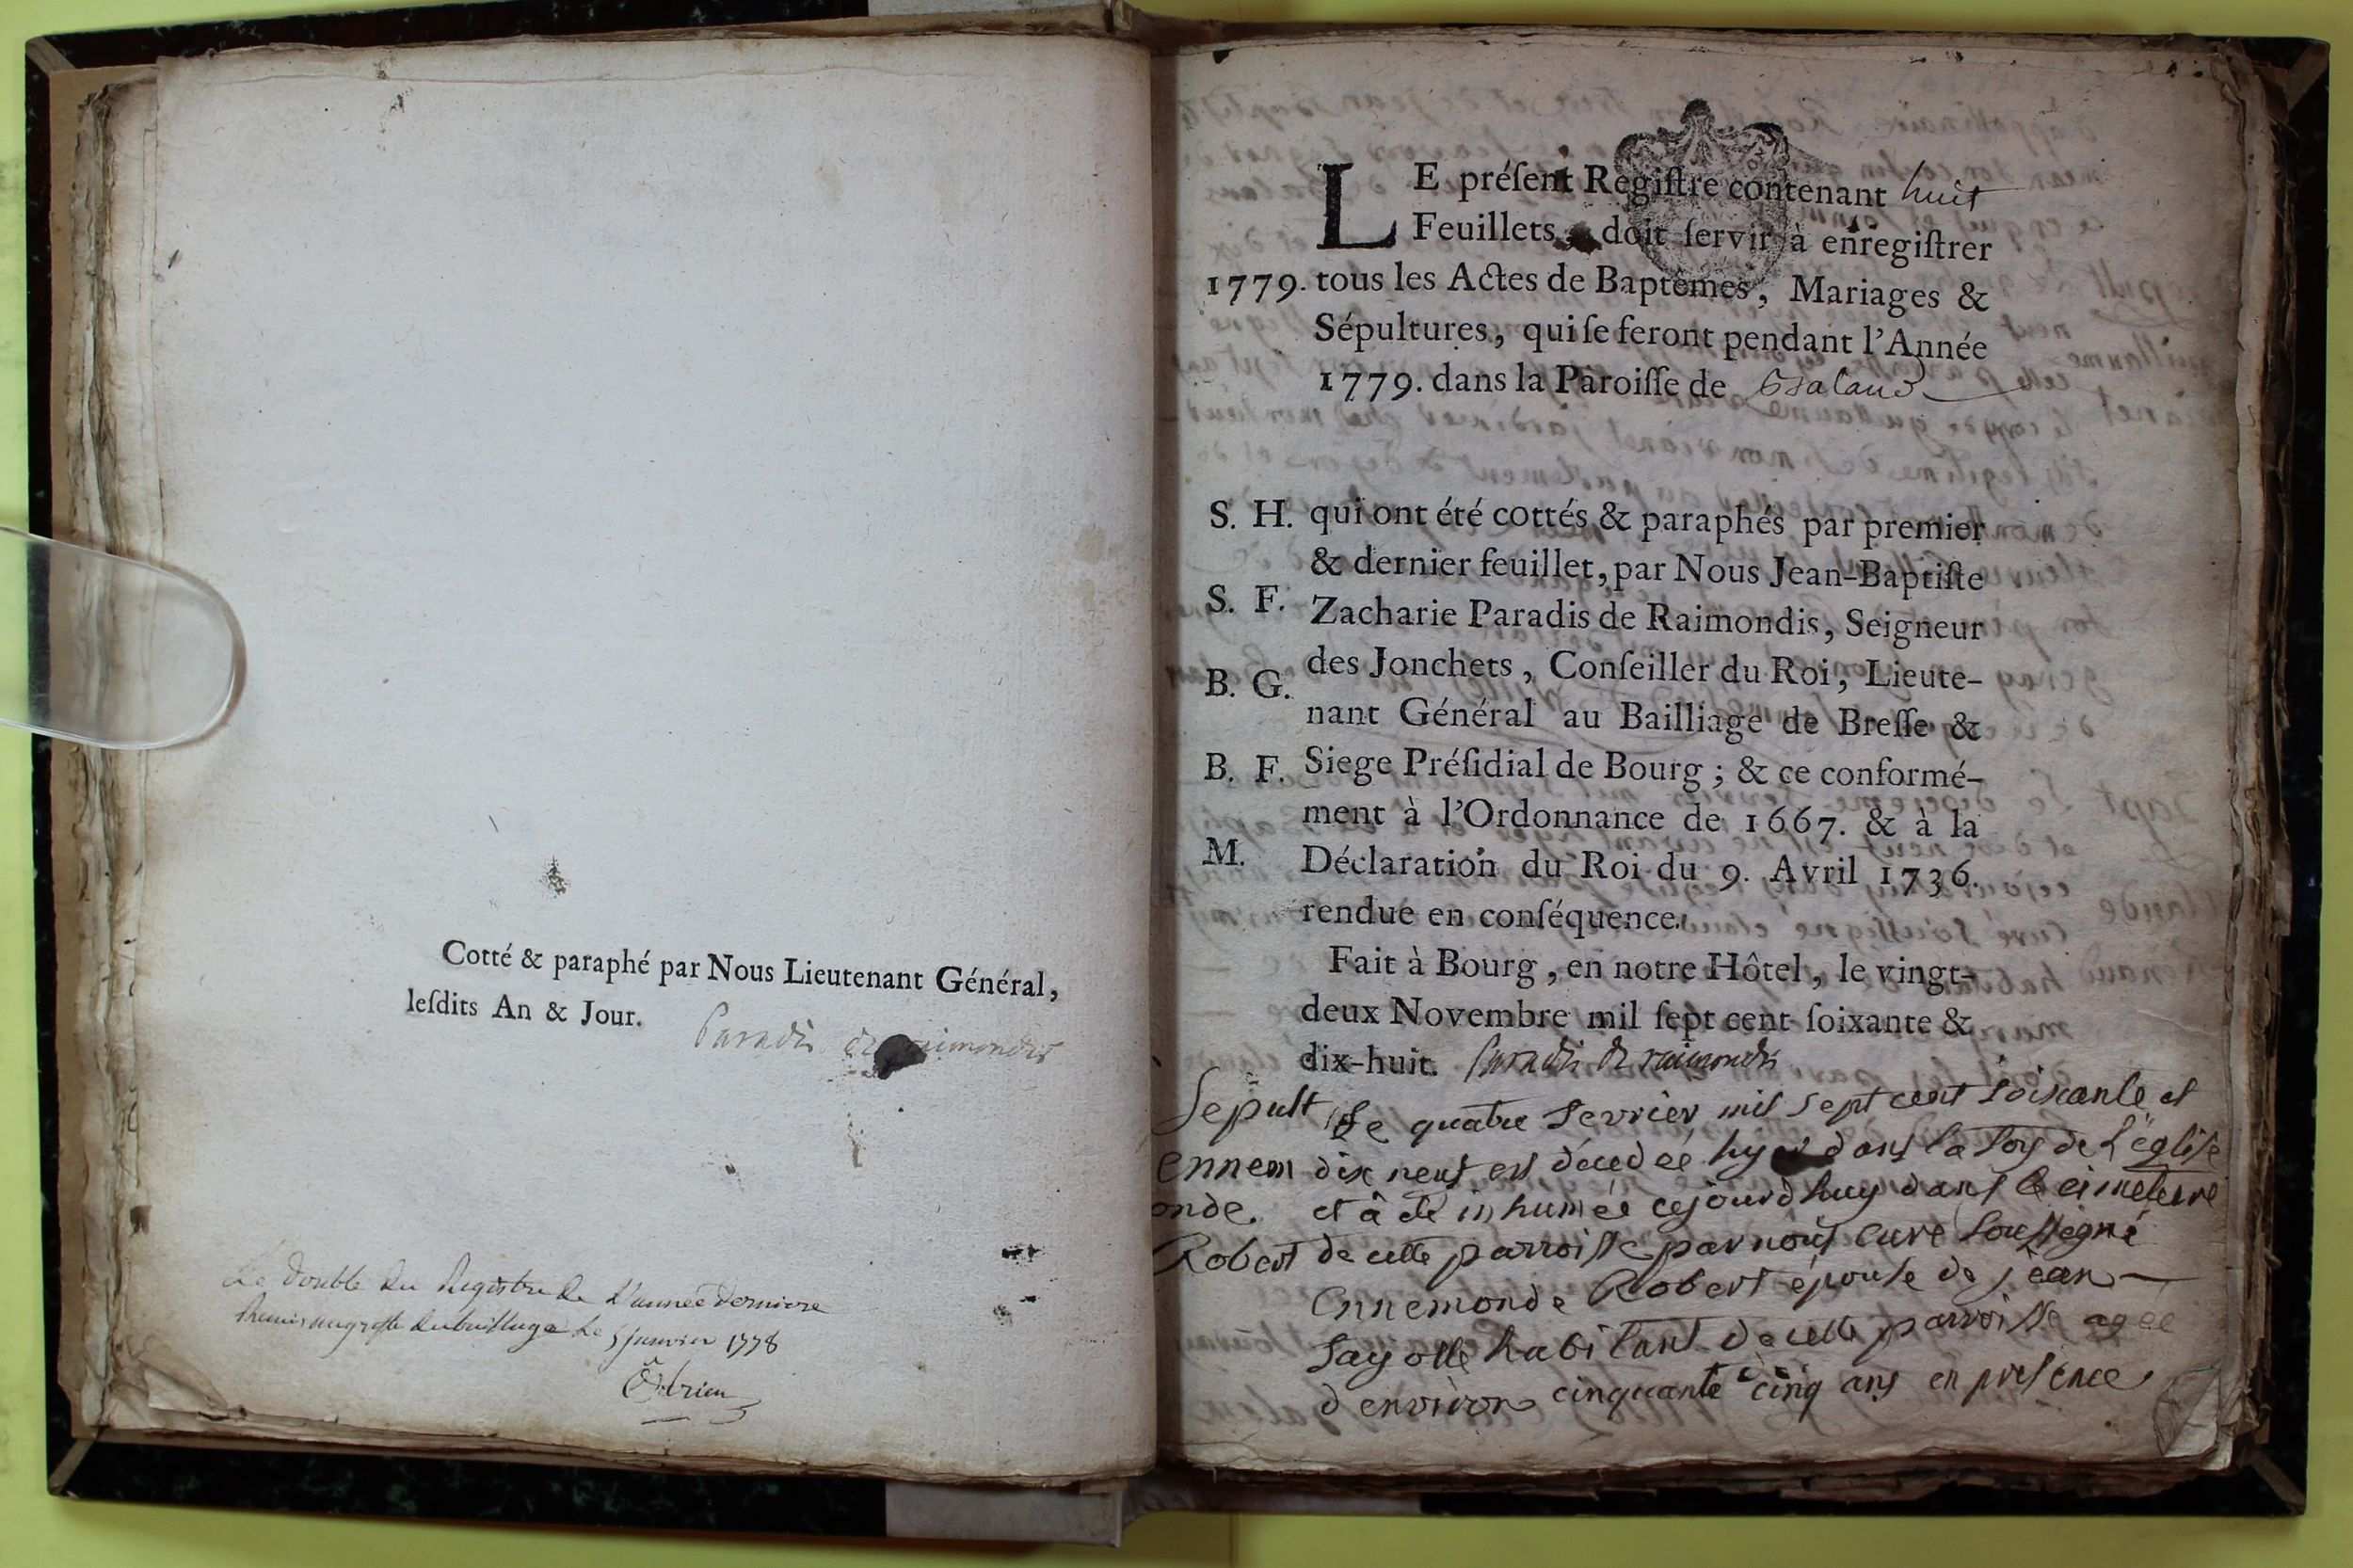 Cotté & paraphé par Nous Lieutenant Général,
leſdits An & Jour.
Paradis de raimondis
Le double du Registre de L'année derniere
Remis au greffe du bailliage Le 5 janvier 1778
LE préſent Regiſtre contenant huit
Feuillets, doit ſervir à enregiſtrer
1779. tous les Actes de Baptêmes, Mariages &
Sépultures, qui ſe feront pendant l'Année
1779. dans la Paroiſſe de Balans
S. H. qui ont été cottés & paraphés par premier
& dernier feuillet, par Nous Jean-Baptiſte
S. F. Zacharie Paradis de Raimondis, Seigneur
des Jonchets, Conſeiller du Roi, Lieute-
B. G. nant Général au Bailliage de Breſſe &
B. F. Siege Préſidial de Bourg ; & ce conformé-
ment à l'Ordonnance de 1667. & à la
M. Déclaration du Roi du 9. Avril 1736.
rendue en conſéquence.
Fait à Bourg, en notre Hôtel, le vingt-
deux Novembre mil ſept cent ſoixante &
dix-huit. Paradis de raimondis
Sepult Le quatre fevrier mil sept cent soixante et
ennem dix neuf est décedée hyer dans la foy de L'église
onde. et à été inhumée cejourdhuy dans le cimeterre
Robert de cette parroisse par nous curé soussigné
Ennemonde Robert épouse de jean
fayolle habitant de cette parroisse agée
d'environ cinquante cinq ans en presence